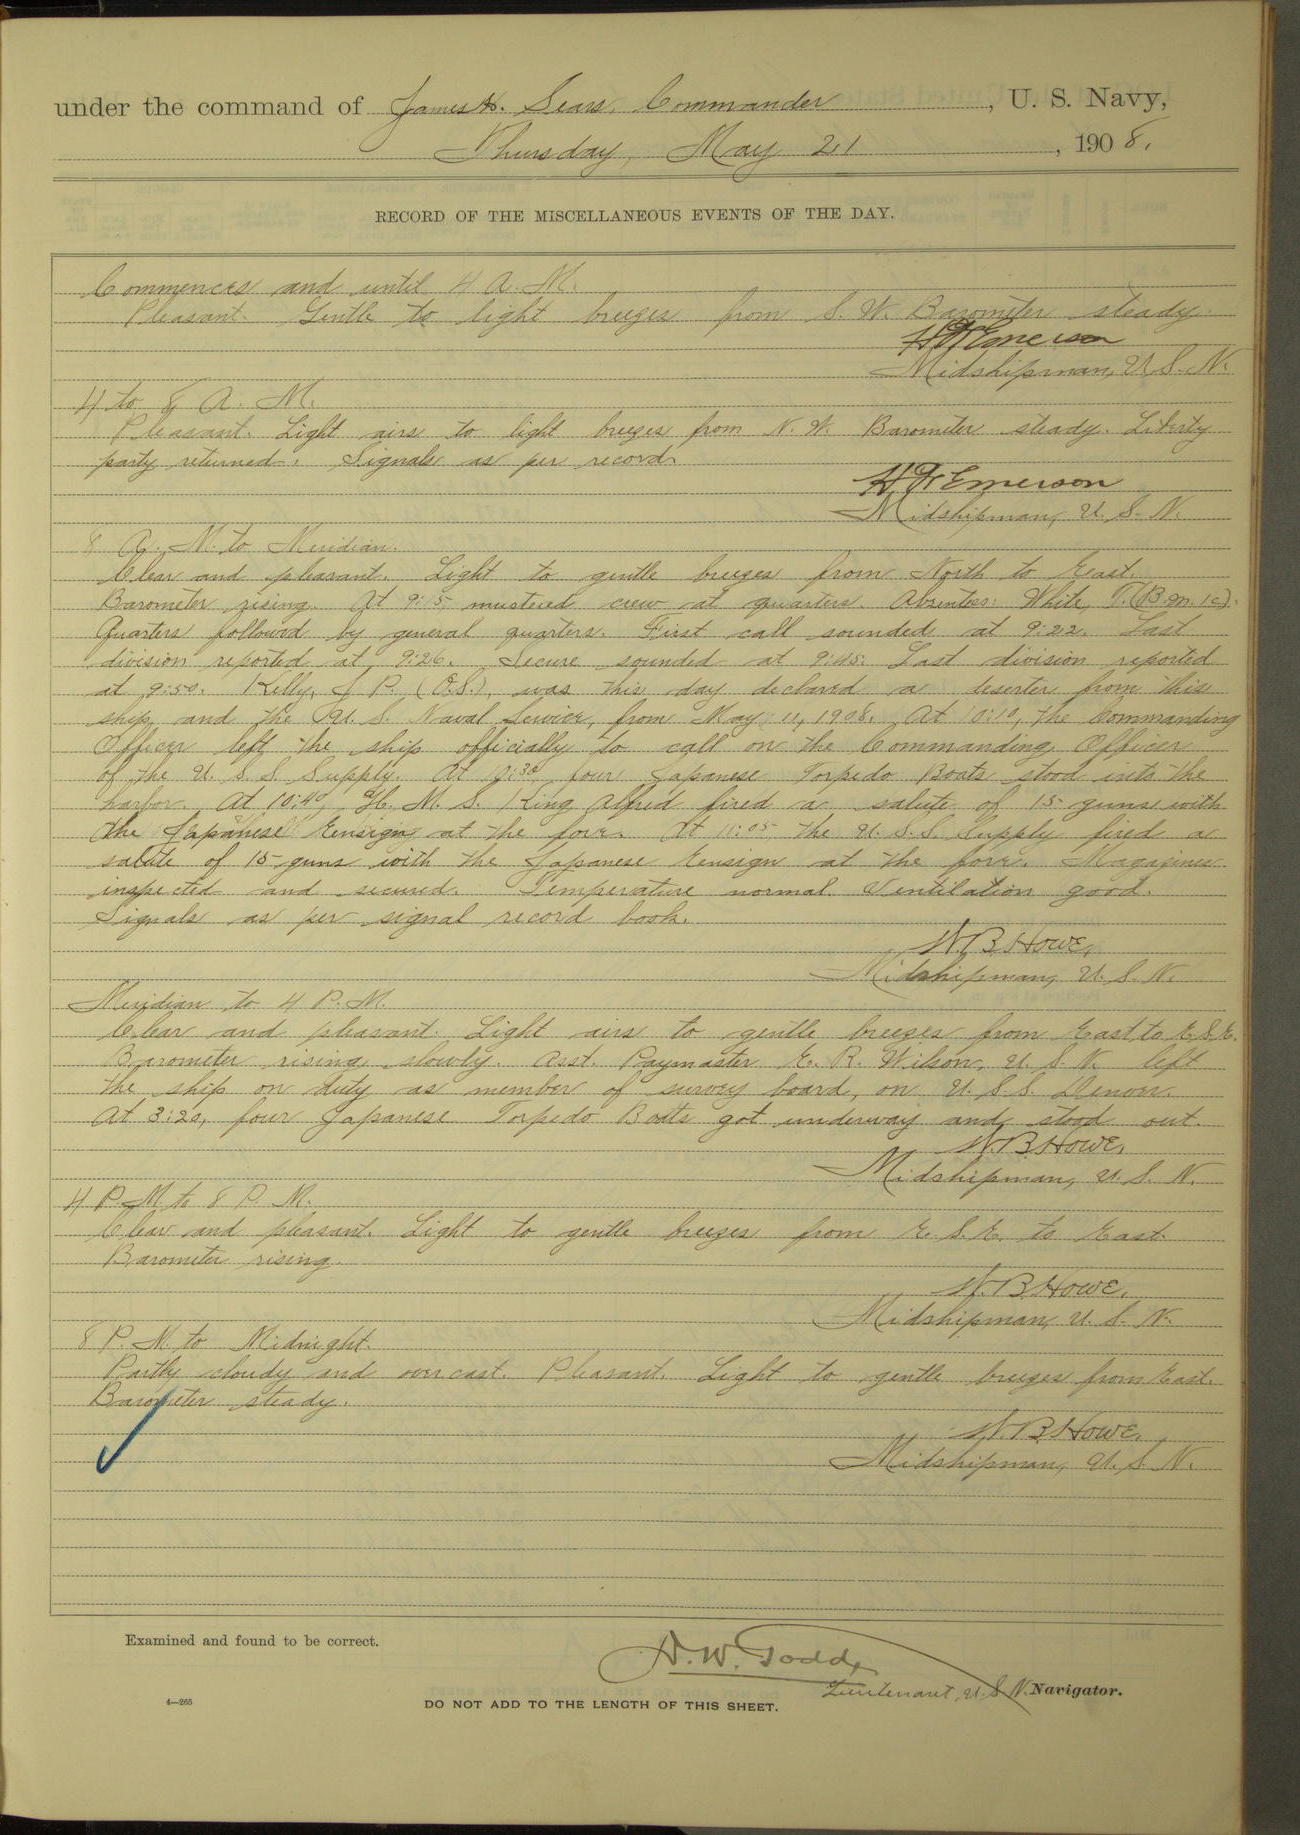 under the command of James H. Sears, Commander, U. S. Navy,
Thursday, May 21, 1908.
RECORD OF THE MISCELLANEOUS EVENTS OF THE DAY.
Commences and until 4 A. M.
Pleasant. Gentle to light breezes from S. W. Barometer steady.
H F Emerson
Midshipman, U. S. N.
4 to 8 A. M.
Pleasant. Light airs to light breezes from N. W. Barometer steady. Liberty
party returned. Signals as per record.
H F Emerson
Midshipman, U. S. N.
8 A. M. to Meridian.
Clear and pleasant. Light to gentle breezes from North to East.
Barometer rising. At 9:15 mustered crew at quarters. Absentees: White, T. (B.m. 1c).
Quarters followed by general quarters. First call sounded at 9:22. Last
division reported at 9:26. Secure sounded at 9:45. Last division reported
at 9:50. Kelly, J. P. (O.S.), was this day declared a deserter from this
ship, and the U. S. Naval Service, from May 11, 1908. At 10:10, the Commanding
Officer left the ship officially to call on the Commanding Officer
of the U. S. S. Supply. At 10:30, four Japanese Torpedo Boats stood into the
harbor. At 10:40, H. M. S. King Alfred fired a salute of 15 guns with
the Japanese Eensign at the fore. At 11:05 the U. S. S. Supply fired a
salute of 15 guns with the Japanese Eensign at the fore. Magazines
inspected and secured. Temperature normal Ventilation good.
Signals as per signal record book.
W. B. Howe,
Midshipman, U. S. N.
Meridian to 4 P. M.
Clear and pleasant. Light airs to gentle breezes from East to E. S. E.
Barometer rising slowly. Asst. Paymaster E. R. Wilson, U. S. N. left
the ship on duty as member of survey board, on U. S. S. Denver.
At 3:20, four Japanese Torpedo Boats got underway and stood out.
W. B. Howe,
Midshipman, U. S. N.
4 P. M. to 8 P. M.
Clear and pleasant. Light to gentle breezes from E. S. E. to East.
Barometer rising.
W. B. Howe,
Midshipman, U. S. N.
8 P. M. to Midnight.
Partly cloudy and overcast. Pleasant. Light to gentle breezes from East.
Barometer steady.
W. B. Howe,
Midshipman, U. S. N.
Examined and found to be correct.
D. W. Todd,
Lieutenant, U. S. N. Navigator.
4—265
DO NOT ADD TO THE LENGTH OF THIS SHEET.